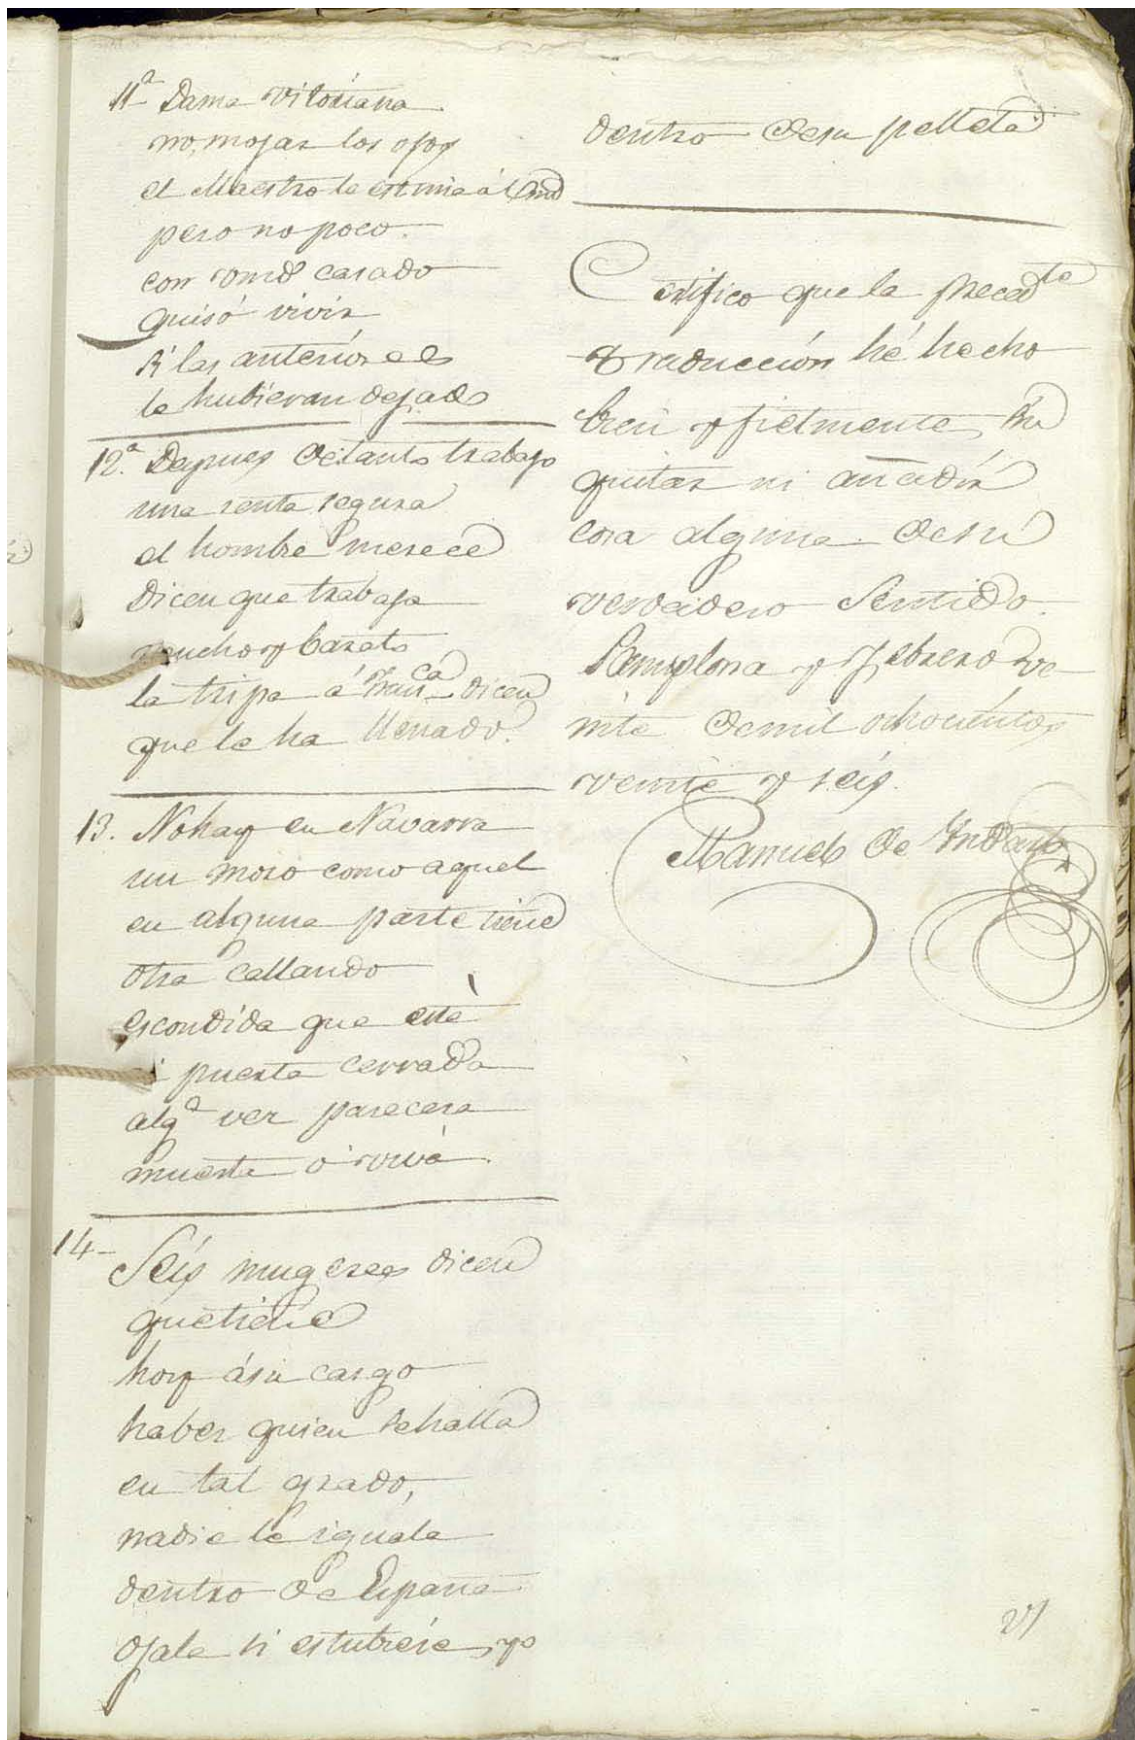 11ª Dama Vitoriana
no mojar los ojos
el Maestro le estima á
pero no poco.
con casado
quisó vivir
si las anteriores
le hubieran dejado
12.ª Depues de tanto trabajo
una renta segura
el hombre merece
Dicen que trabaja
mucho y barato
la tripa á Franca dicen
que le ha llenado.
13. No hay en Navarra
un moro como aquel
en alguna parte tiene
otra callando
escondida que esté
si puerta cerrada
algª vez parecera
muerta ó viva
14- Seis mugeres dicen
que tiene
hoy ásu cargo
haber quien se halla
en tal grado,
nadie le iguala
dentro de España
ojala si estubiese yo
dentro desu pelleta
Certifico que la preced.te
traducción hé hecho
bien y fielmente, sin
quitar ni añadir
cosa alguna desu
verdadero Sentido.
Pamplona y Febrero ve-
inte demil ochocientos
veinte y seis.
Manuel de Yndart
27